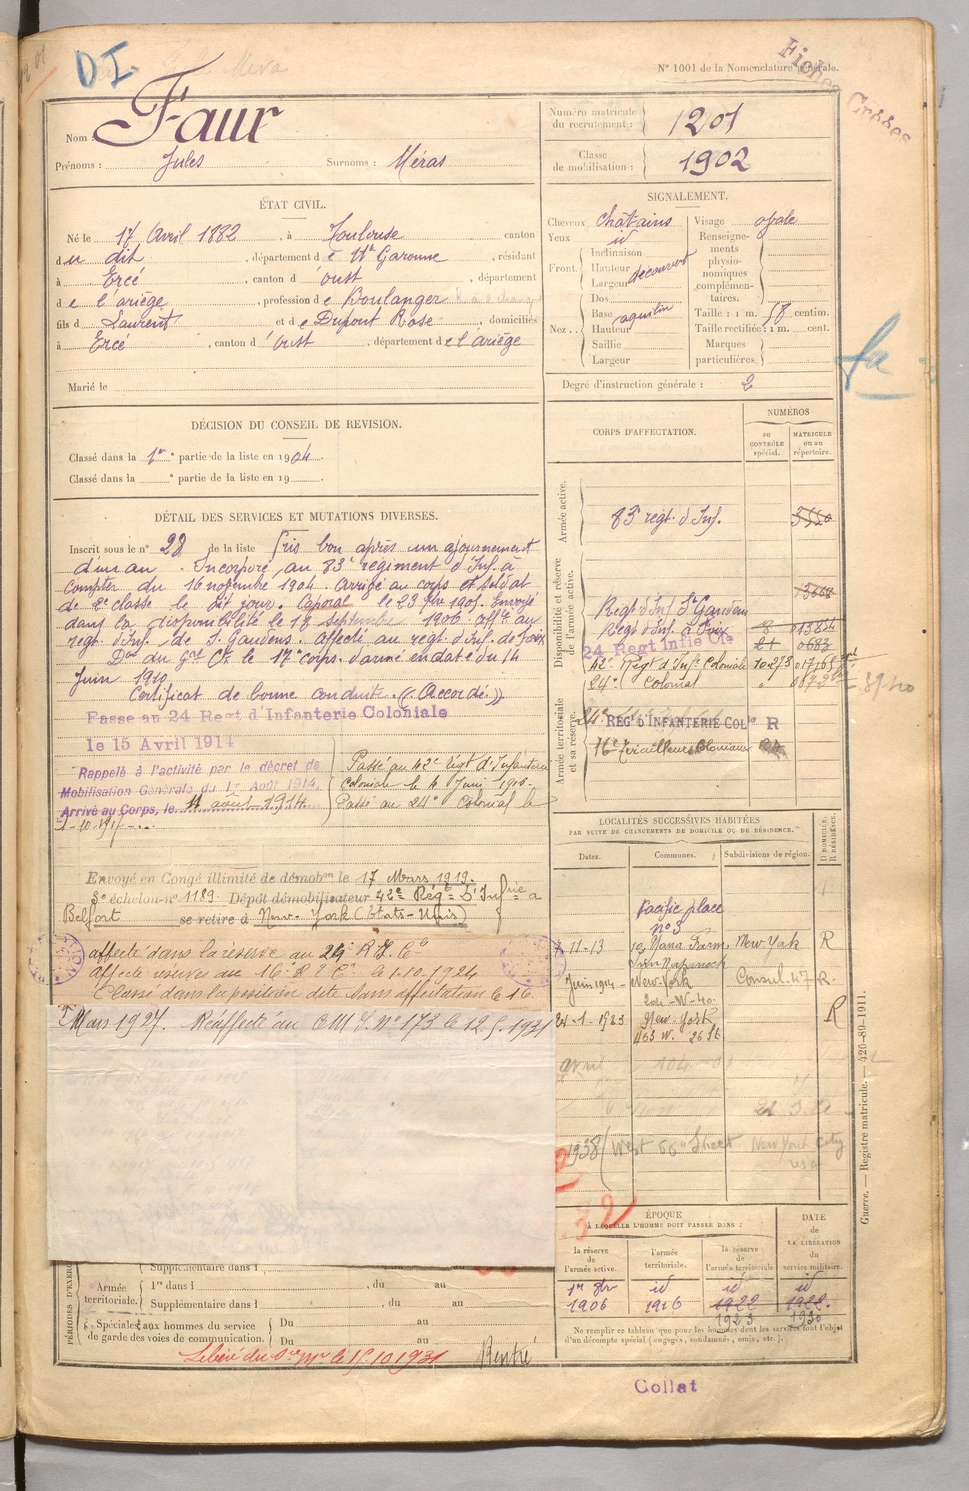 DI
N° 1001 de la Nomenclature générale.
Fiches Croses
Nom : Faur
Prénoms : Jules Surnoms : Méras
Numéro matricule du recrutement : 1201
Classe de mobilisation : 1902
ÉTAT CIVIL.
Né le 17 Avril 1882, à Toulouse canton
du dit, département de Hte Garonne, résidant
à Ercé, canton d'Oust, département
de l'ariège, profession de Boulanger
fils de Laurent et de Dupont Rose, domiciliés
à Ercé, canton d'Oust, département de l'ariège
Marié le
SIGNALEMENT.
Cheveux chatains
Yeux id
Front. Inclinaison
Hauteur découvert
Largeur
Nez. Dos
Base aquilin
Hauteur
Saillie
Largeur
Visage ovale
Renseignements physionomiques complémentaires.
Taille : 1 m. 58 centim.
Taille rectifiée : 1 m. cent.
Marques particulières.
Degré d'instruction générale : 2
DÉCISION DU CONSEIL DE REVISION.
Classé dans la 1re partie de la liste en 1904
Classé dans la e partie de la liste en 19
DÉTAIL DES SERVICES ET MUTATIONS DIVERSES.
Inscrit sous le n° 28 de la liste Pris bon après un ajournement
d'un an. Incorporé au 83e régiment d'Inf. à
compter du 16 novembre 1904. Arrivé au corps et soldat
de 2e classe le dit jour. Caporal le 23 7bre 1905. Envoyé
dans la disponibilité le 18 septembre 1906. affté au
regt. d'Inf. de St Gaudens. Affecté au regt. d'Inf. de Foix
Don du Gal Ct le 17e corps d'armée en date du 14
Juin 1910
Certificat de bonne conduite. (Accordé.)
Passé au 24 Regt d'Infanterie Coloniale
le 15 Avril 1914
Rappelé à l'activité par le décret de
Mobilisation Générale du 1er Août 1914.
Arrivé au Corps, le 11 août 1914
Passé au 42e Régt d'Infanterie
Coloniale le 4 Juin 1916.
Passé au 24e Colonial le
1-10-191
Envoyé en Congé illimité de démobon le 17 Mars 1919.
3e échelon n° 1189. Dépôt démobilisateur 42e Régt d'Infrie à
Belfort se retire à New-York (États-Unis)
affecté dans la réserve au 24 R.I.C.
affecté réserve au 16e R T C le 1-10-1924
Classé dans la position dite sans affectation le 16
Mars 1927. Réaffecté au C M I N° 173 le 12.5.1931
CORPS D'AFFECTATION.
NUMÉROS
au contrôle spécial.
matricule ou au répertoire.
Armée active.
83e regt. d'Inf. 5520
Disponibilité et réserve de l'armée active.
Regt d'Inf St Gaudens
Regt d'Inf de Foix 13854
24 Regt Infie Cle 21 0683
42e Regt d'Infie Coloniale
24e Colonial
Armée territoriale et sa réserve.
24e REGt D'INFANTERIE COLle R
16e Tirailleurs Coloniaux
LOCALITÉS SUCCESSIVES HABITÉES
PAR SUITE DE CHANGEMENTS DE DOMICILE OU DE RÉSIDENCE.
Dates.
Communes.
Subdivisions de région.
D domicile, R résidence.
Pacific place
n° 3
11-13 New York R
Juin 1914 New-York Consul. 47 R.
204-W-40.
24-1-1923 New-York R
463 W. 26 St
avril
1938 West 66 Street New York City
USA
ÉPOQUE
À LAQUELLE L'HOMME DOIT PASSER DANS :
DATE DE LA LIBÉRATION du service militaire.
la réserve de l'armée active.
l'armée territoriale.
la réserve de l'armée territoriale
1er 8bre 1906
id 1916
id 1922
1923
id 1922.
1930
Ne remplir ce tableau que pour les hommes dont les services font l'objet d'un décompte spécial (engagés, condamnés, omis, etc.).
PÉRIODES D'EXERC
Supplémentaire dans l , du au
Armée territoriale. 1re dans l , du au
Supplémentaire dans l , du au
Spéciales aux hommes du service de garde des voies de communication. Du au
Du au
Libéré du Sce Mre le 15.10.1931 Rentré
Guerre. — Registre matricule. — 426-89-1911.
Collat